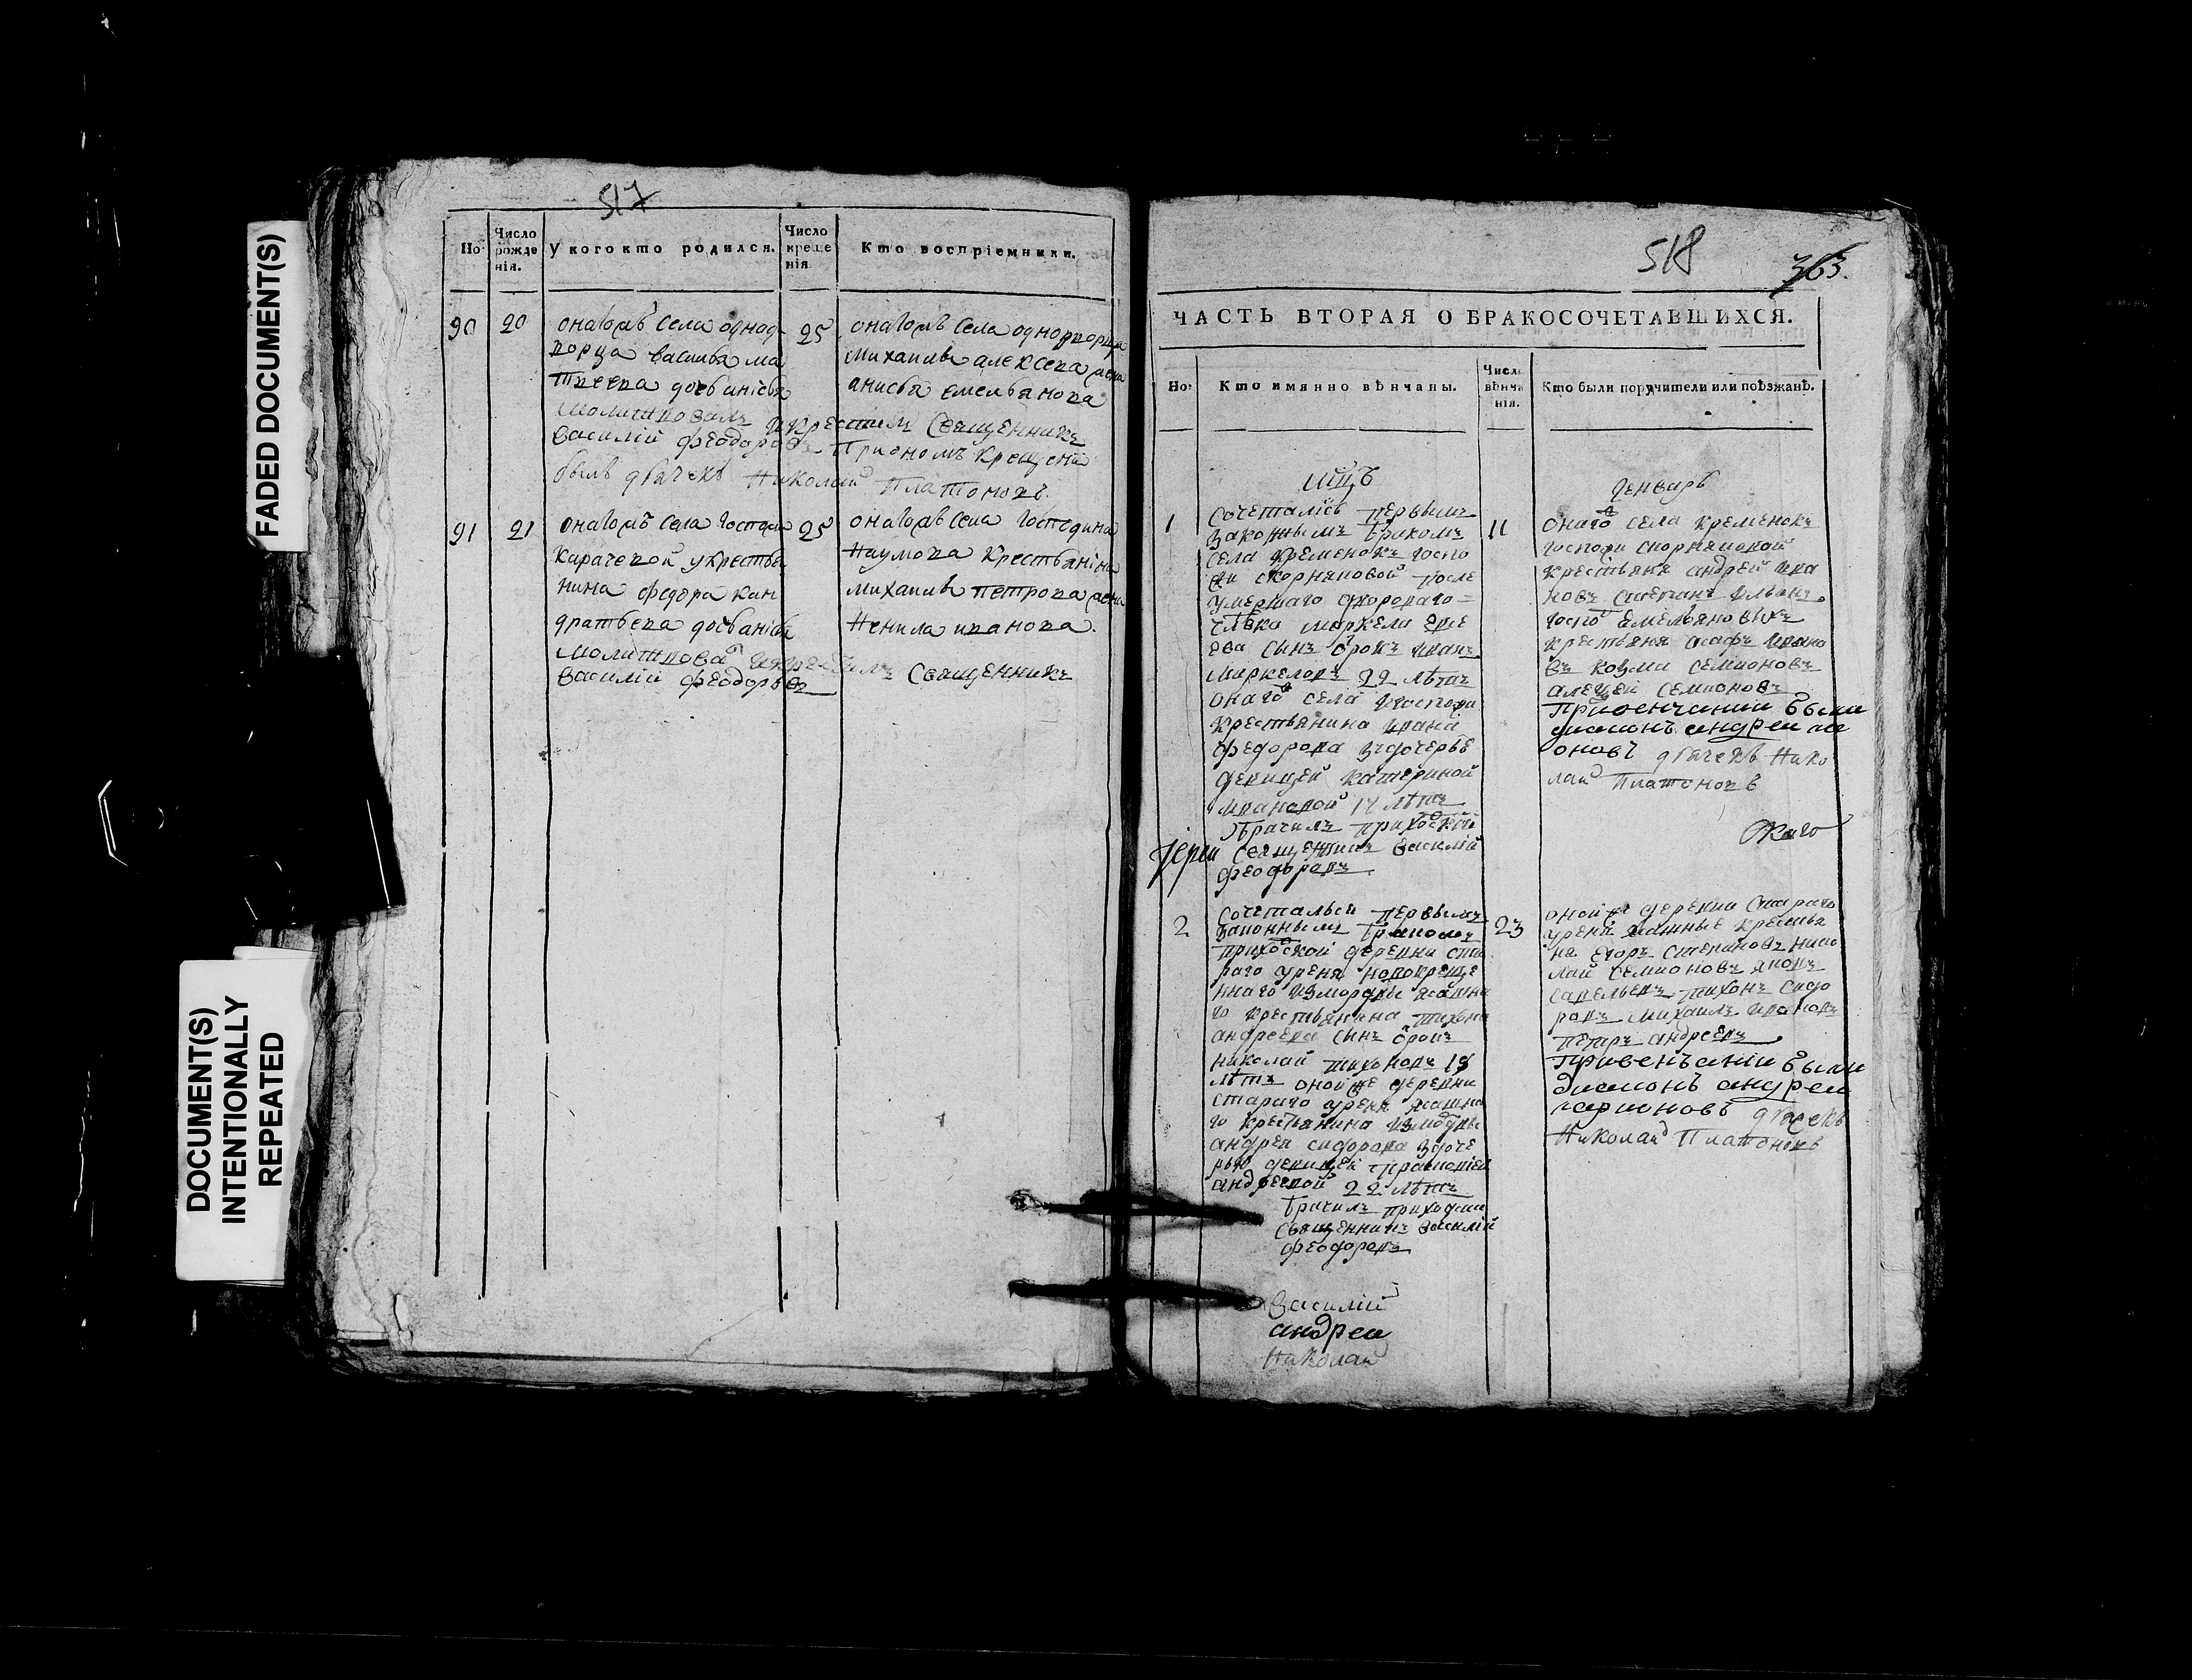 FADED DOCUMENT(S)
DOCUMENT(S)
INTENTIONALLY
REPEATED
517
Но
Число рожде нія.
У кого кто родился.
Число креще нія
Кто воспріемники.
90
20
онагожъ села однод
ворца василья ма
твеева дочь анісья
молитвовалъ и крестилъ священникъ
василій феодоровъ При ономъ крещеніи
былъ дьячекъ Николай Платоновъ
25
онагожъ села однодворца
михаила алексеева
анисья емельянова
91
21
онагожъ села госпожи
карачевой у крестья
нина федора кон
дратьева дочь анісья
молитвовалъ и крестилъ священникъ
василій феодоровъ
25
онагожъ села господина
Наумова крестьянина
михаила петрова
Ненила иванова
518
363.
ЧАСТЬ ВТОРАЯ О БРАКОСОЧЕТАВШИХСЯ.
Но
Кто имянно вѣнчаны.
Число вѣнча нія.
Кто были поручители или поѣзжанѣ.
генварь
1
сочетались первымъ
законнымъ бракомъ
села кременокъ госпо
жи скорняковой после
умершаго дворового
члвка маркела
сынъ отрокъ иванъ
маркеловъ 22 лѣтъ
онаго села
крестьянина ивана
федорова з дочерью
девицей катериной
ивановой
брачилъ приходской
іерей священникъ василій
феодоровъ
11
онаго села кременокъ
госпожи скорняковой
крестьяня андрей ива
новъ степанъ
госпо емельяновыхъ
крестьяня
козма семионовъ
алексей семионовъ
При венчании были
диаконъ андреи
дьячекъ Нико
лай Платоновъ
2
сочетались первымъ
законнымъ бракомъ
приходской деревни ста
раго уреня новокреще
ннаго из мордвы ясашна
го крестьянина тихона
андреева сынъ отрокъ
николай тихоновъ
лѣтъ оной же деревни
стараго уреня ясашна
го крестьянина из мордвы
андрея сидорова з доче
рью девицей
андреевой 22 лѣтъ
брачилъ приходской
священникъ василій
феодоровъ
23
оной же деревни стараго
уреня ясашные крестья
не егоръ степановъ нико
лай семионовъ яковъ
савельевъ тихонъ сидо
ровъ михаилъ ивановъ
петръ андреевъ
При венъчании были
диаконъ андреи
дьячекъ
Николай Платоновъ
Василій
андреи
Николай